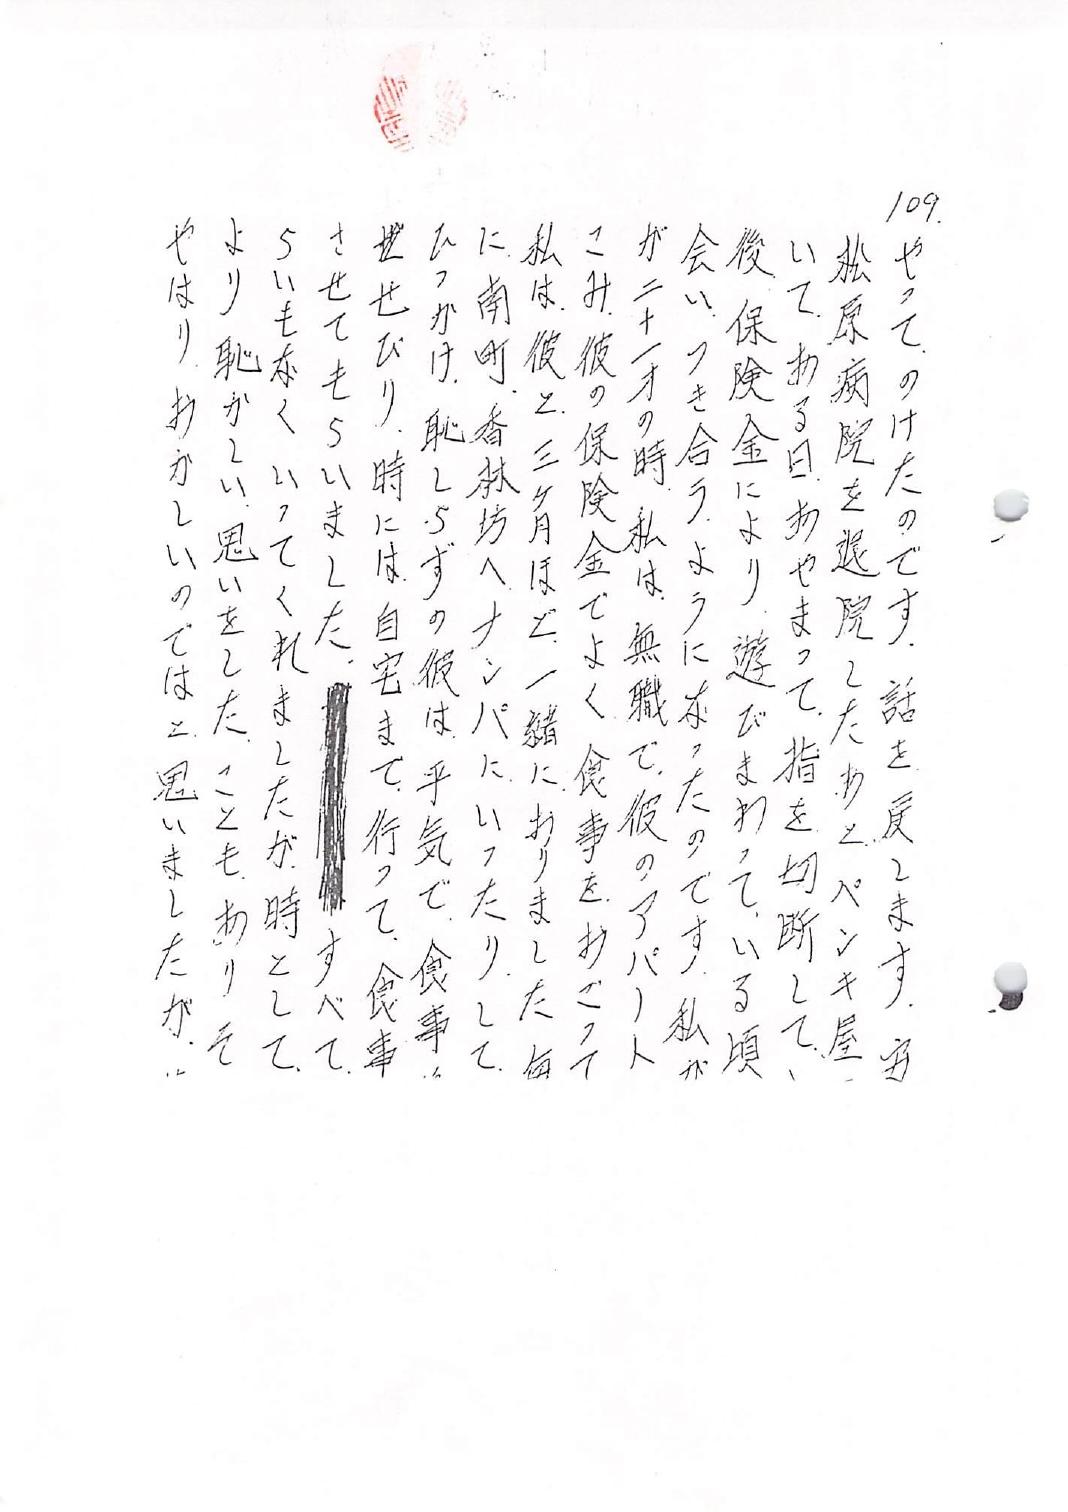 109.
やって、のけたのです。話を戻します。
松原病院を退院したあとペンキ屋
いて、ある日、あやまって、指を切断して、
後、保険金により、遊びまわって、いる頃
会い、つき合うようになったのです。私が
が二十一才の時、私は、無職で、彼のアパート
こみ、彼の保険金でよく食事をおごって
私は、彼と、三ヶ月ほど、一緒におりました
に南町、香林坊へナンパにいったり、して、
ひっかけ、恥しらずの彼は、平気で、食事
ぜせびり、時には、自宅まで、行って、食事
させてもらいました、すべて、
らいもなくいってくれましたが、時として、
より恥かしい、思いをした、ことも、あり そ
やはり、おかしいのではと、思いましたが、